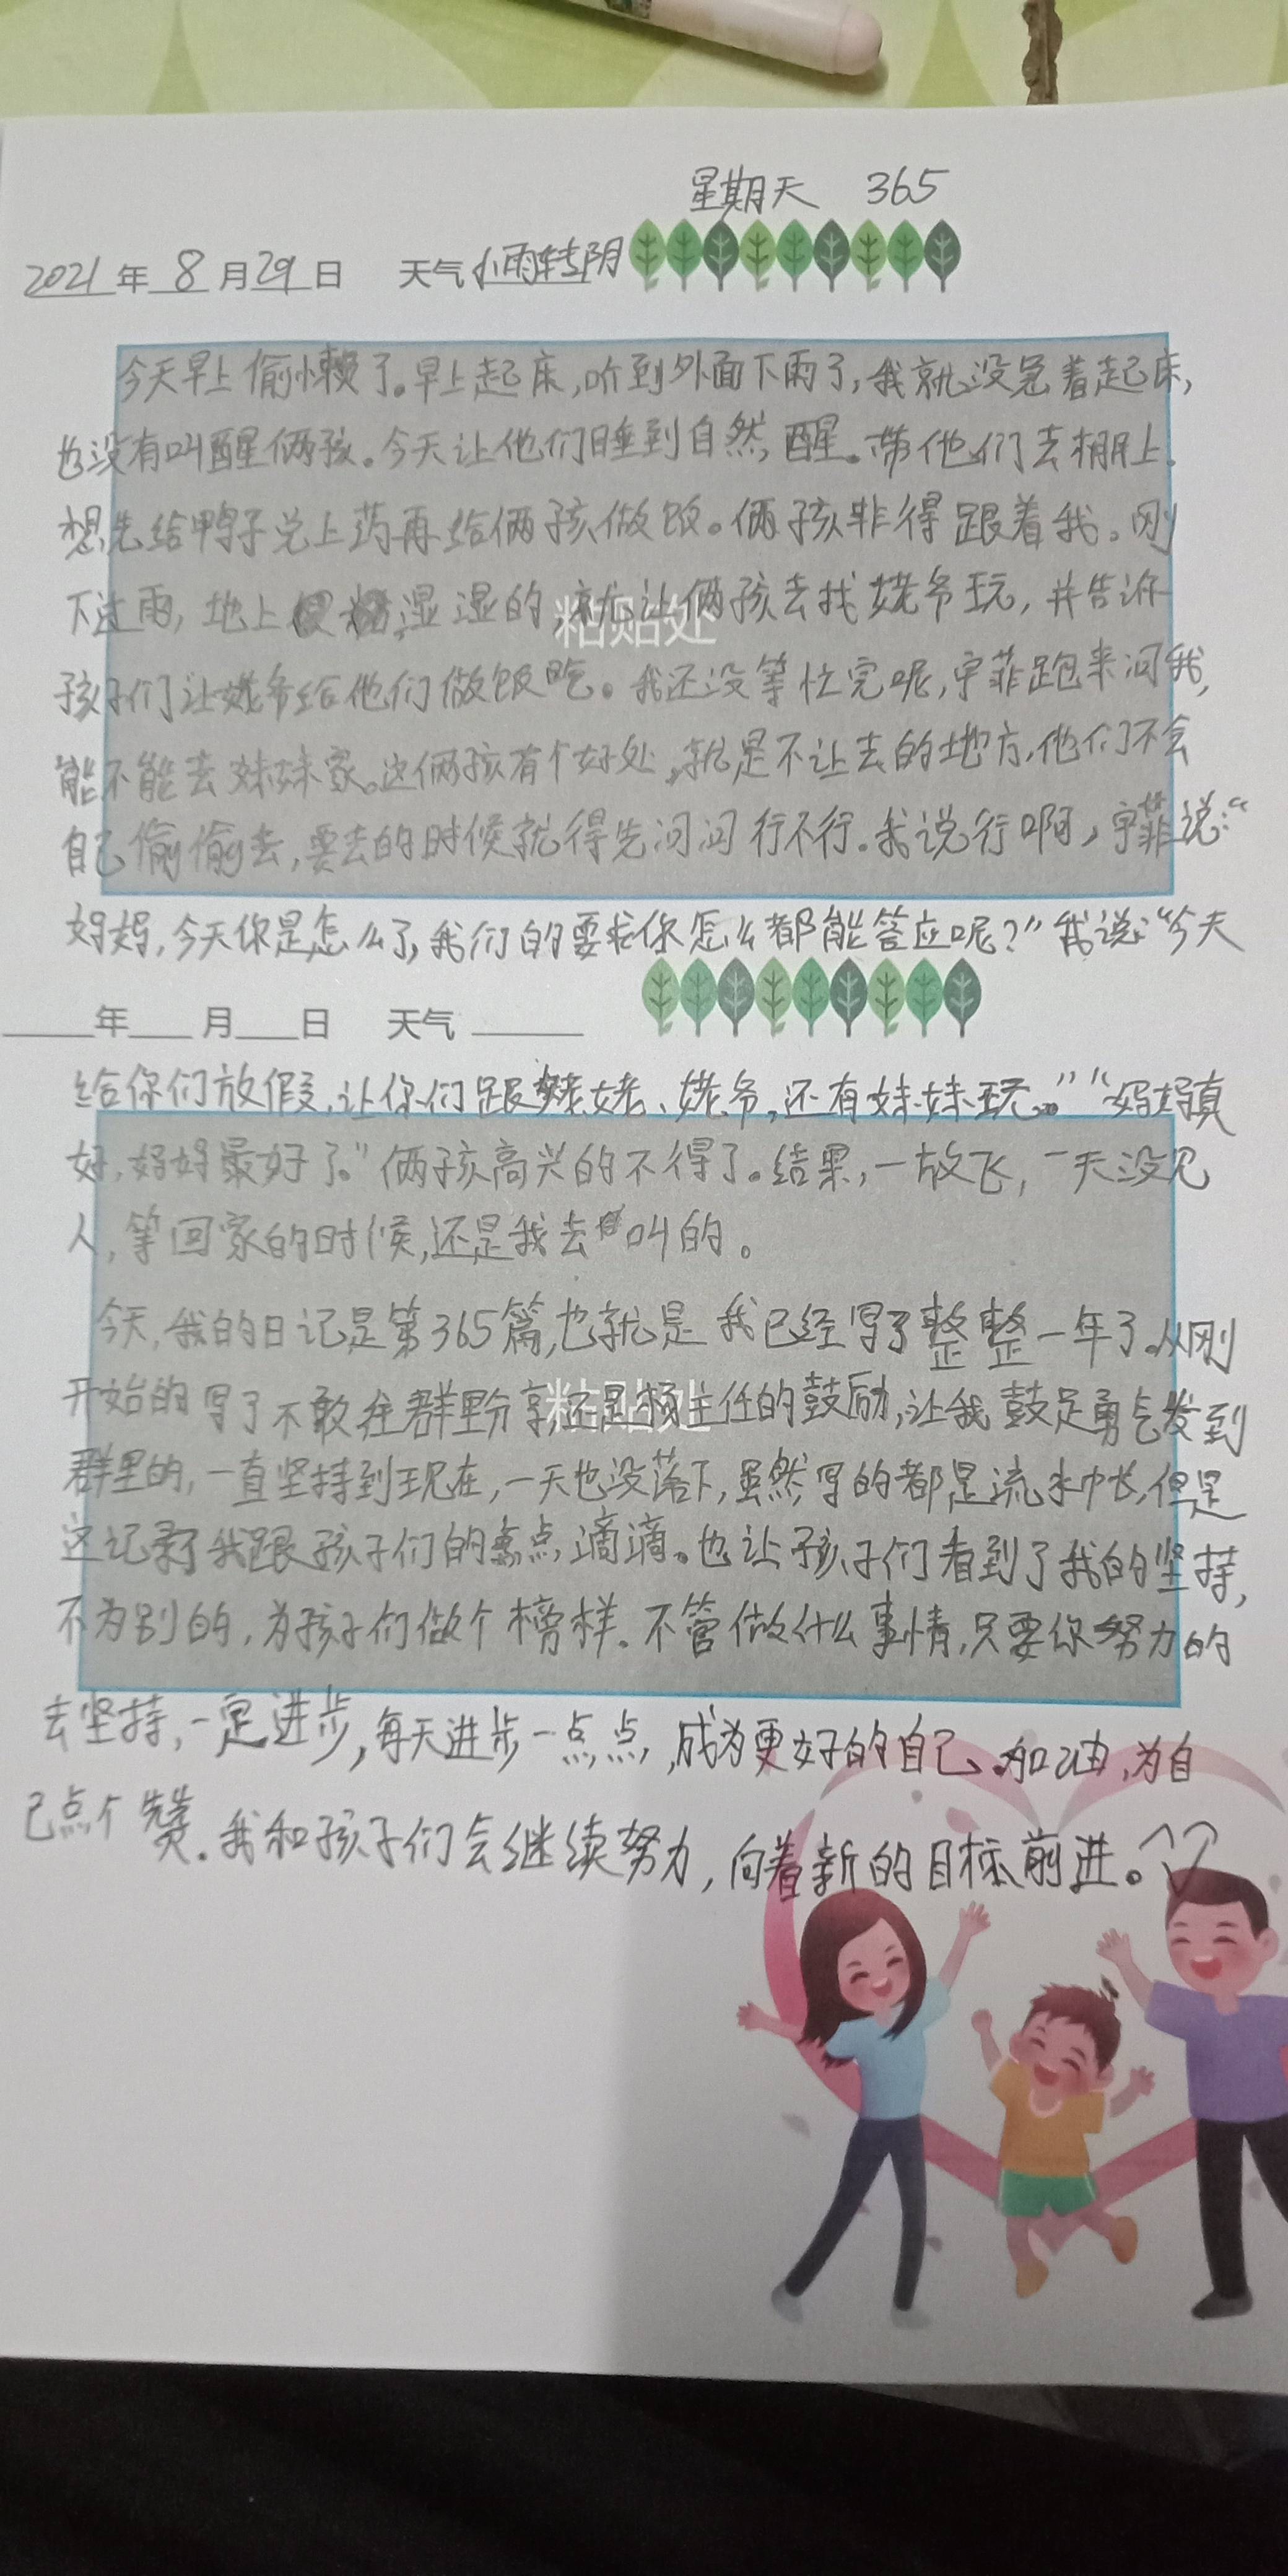 星期天 365
2021年8月29日 天气小雨转阴
今天早上偷懒了。早上起床,听到外面下雨了,我就没急着起床,
也没有叫醒俩孩。今天让他们睡到自然醒。带他们去棚上.
想先给鸭子兑上药再给俩孩做饭。俩孩非得跟着我。刚
下过雨,地上湿湿的,就让俩孩去找姥爷玩,并告诉
粘贴处
孩子们让姥爷给他们做饭吃。我还没等忙完呢,宇菲跑来问我,
能不能去妹妹家。这俩孩有个好处,就是不让去的地方,他们不会
自己偷偷去,要去的时候就得先问问行不行.我说行啊,宇菲说:“
妈妈,今天你是怎么了,我们的要求你怎么都能答应呢?”我说:“今天
年 月 日 天气
给你们放假,让你们跟姥姥、姥爷,还有妹妹玩。”“妈妈真
好,妈妈最好了。”俩孩高兴的不得了。结果,一放飞,一天没见
人,等回家的时候,还是我去叫的。
今天,我的日记是第365篇,也就是我已经写了整整一年了.从刚
开始的写了不敢在群里分享,还是杨主任的鼓励,让我鼓足勇气发到
粘贴处
群里的,一直坚持到现在,一天也没落下,虽然写的都是流水帐,但是
这记录了我跟孩子们的点点滴滴。也让孩子们看到了我的坚持,
不为别的,为孩子们做个榜样.不管做什么事情,只要你努力的
去坚持,一定进步,每天进步一点点,成为更好的自己.加油,为自
己点个赞.我和孩子们会继续努力,向着新的目标前进。